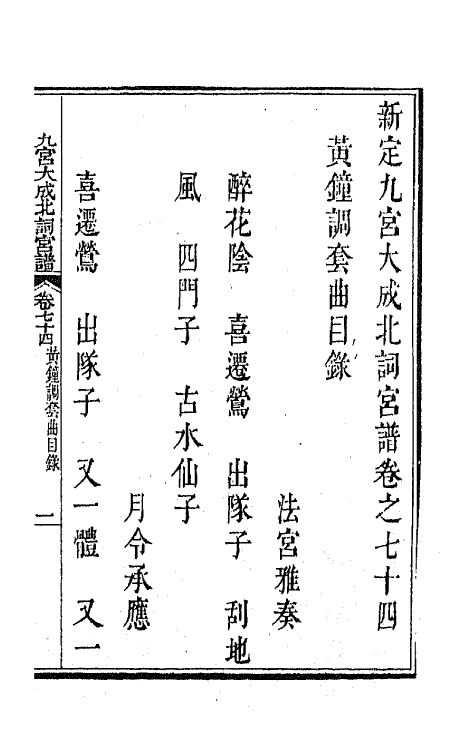 新定九宮大成北詞宮譜卷之七十四
黃鐘調套曲目錄
法宮雅奏
醉花陰　喜遷鶯　出隊子　刮地
風　四門子　古水仙子
月令承應
喜遷鶯　出隊子　又一體　又一
九宮大成北詞宮譜　卷七十四　黃鐘調套曲目錄　一